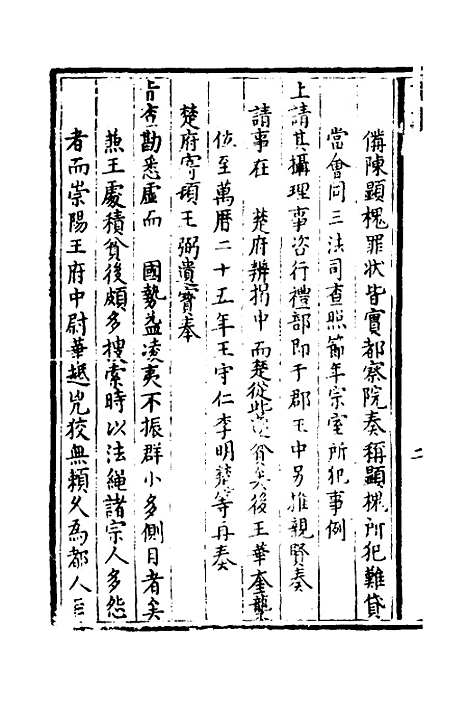 備陳顯槐罪状皆實都察院奏稱顯槐所犯難貸
當會同三法司查照節年宗室所犯事例
上請其攝理事咨行禮部即于郡王中另推親賢奏
請事在 楚府辨揭中而楚從此後王華奎襲
位至萬曆二十五年王守仁李明楚等再奏
楚府寄頓王弼遺寶奉
旨查勘悉虛而 國勢益凌夷不振群小多側目者矣
燕王處積貧後頗多搜索時以法繩諸宗人多怨
者而崇陽王府中尉華趆兇狡無賴久為都人
二